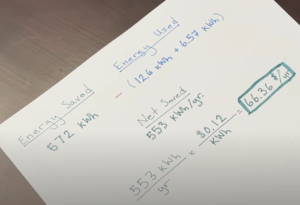 Energy Saved
572 kWh
Energy Used
- (12.6 kWh + 6.57 kWh)
Net Saved
553 kWh/yr.
553 kWh
yr
x
$0.12
kWh
=
66.36 $/yr